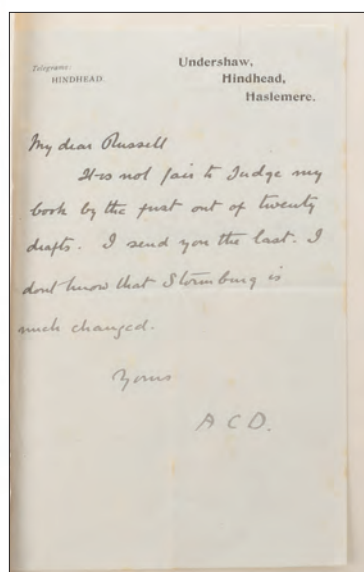 Telegrams:
HINDHEAD.
Undershaw,
Hindhead,
Haslemere.
My dear Russell
It is not fair to Judge my
book by the first out of twenty
drafts. I send you the last. I
dont know that Stormburg is
much changed.
Yours
A C D.